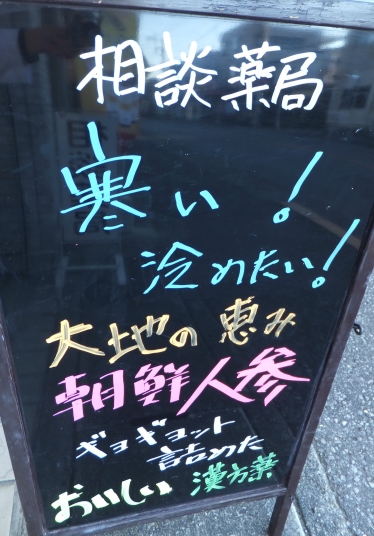 相談薬局
寒い!
冷めたい!
大地の恵み
朝鮮人参
ギョギョット
詰めた
おいしい 漢方薬